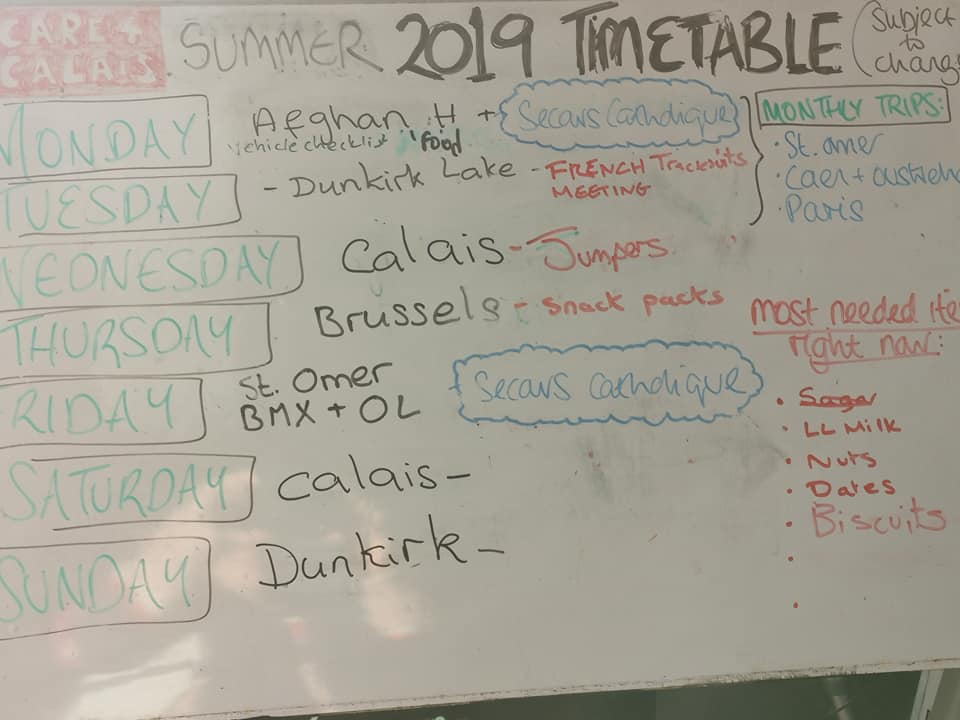 CARE 4
CALAIS
SUMMER 2019 TIMETABLE (Subject
to
change
MONDAY
Afghan H + Secours Catholique
vehicle checklist 'Food
TUESDAY
- Dunkirk Lake - FRENCH Tracksuits
MEETING
WEDNESDAY
Calais - Jumpers
THURSDAY
Brussels - snack packs
FRIDAY
St. Omer
BMX + OL
+ Secours Catholique
SATURDAY
Calais -
SUNDAY
Dunkirk -
MONTHLY TRIPS:
· St. omer
· Caen +
· Paris
most needed ite
right now:
· Sugar
· LL Milk
· Nuts
· Dates
· Biscuits